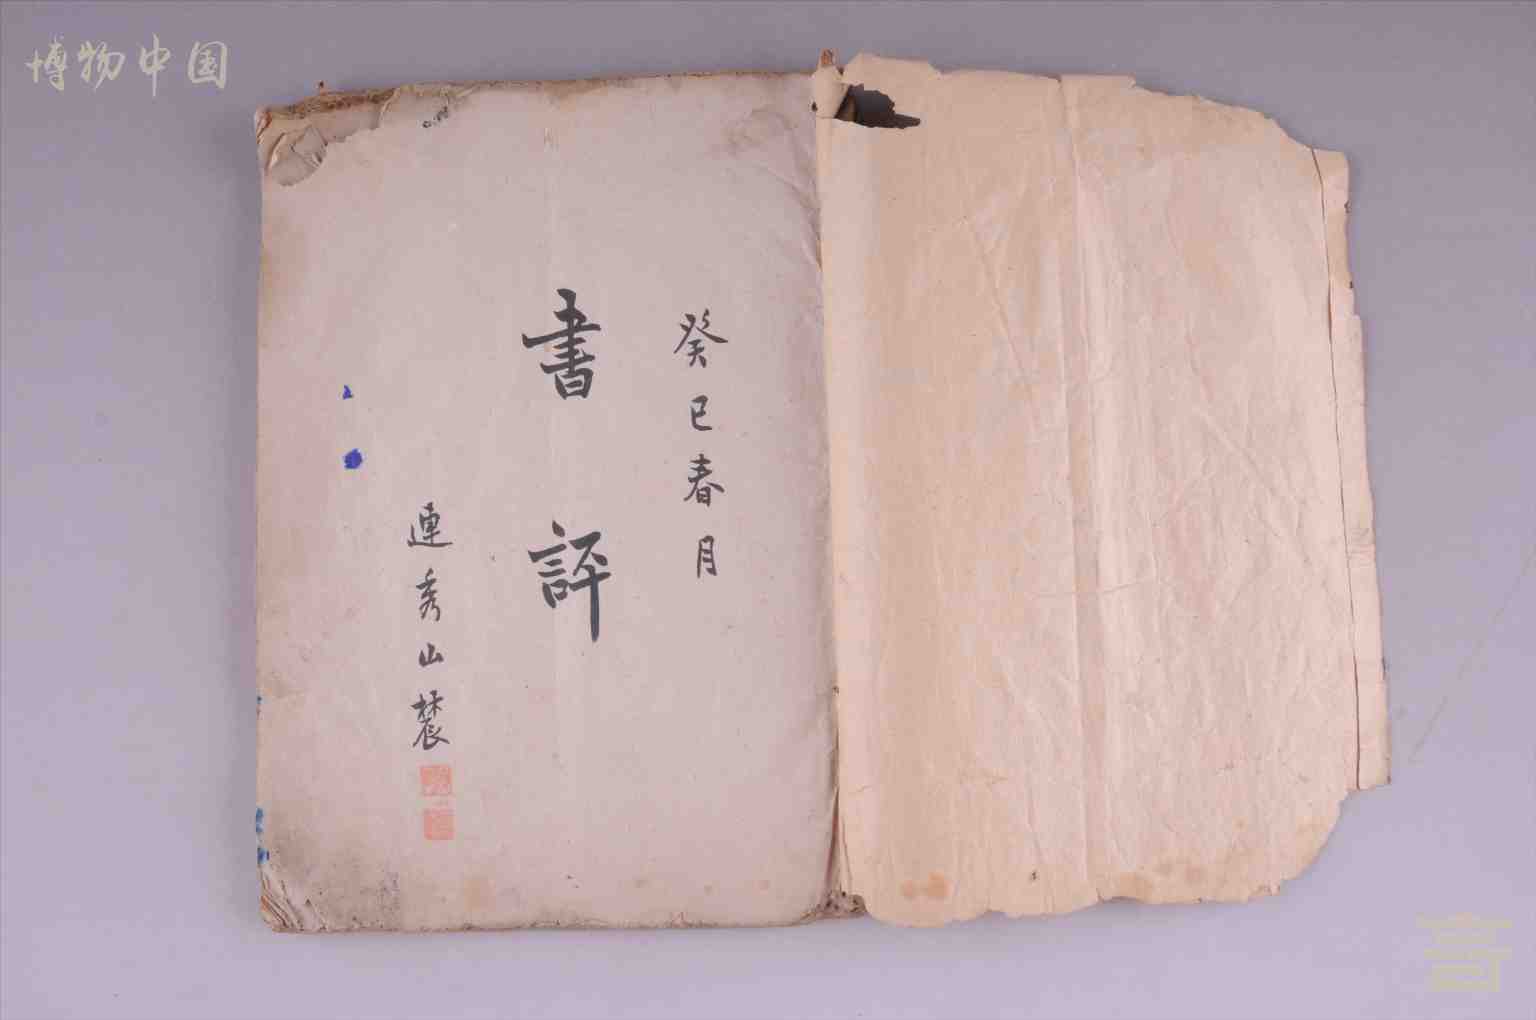 博物中国
癸巳春月
書評
連秀山麓